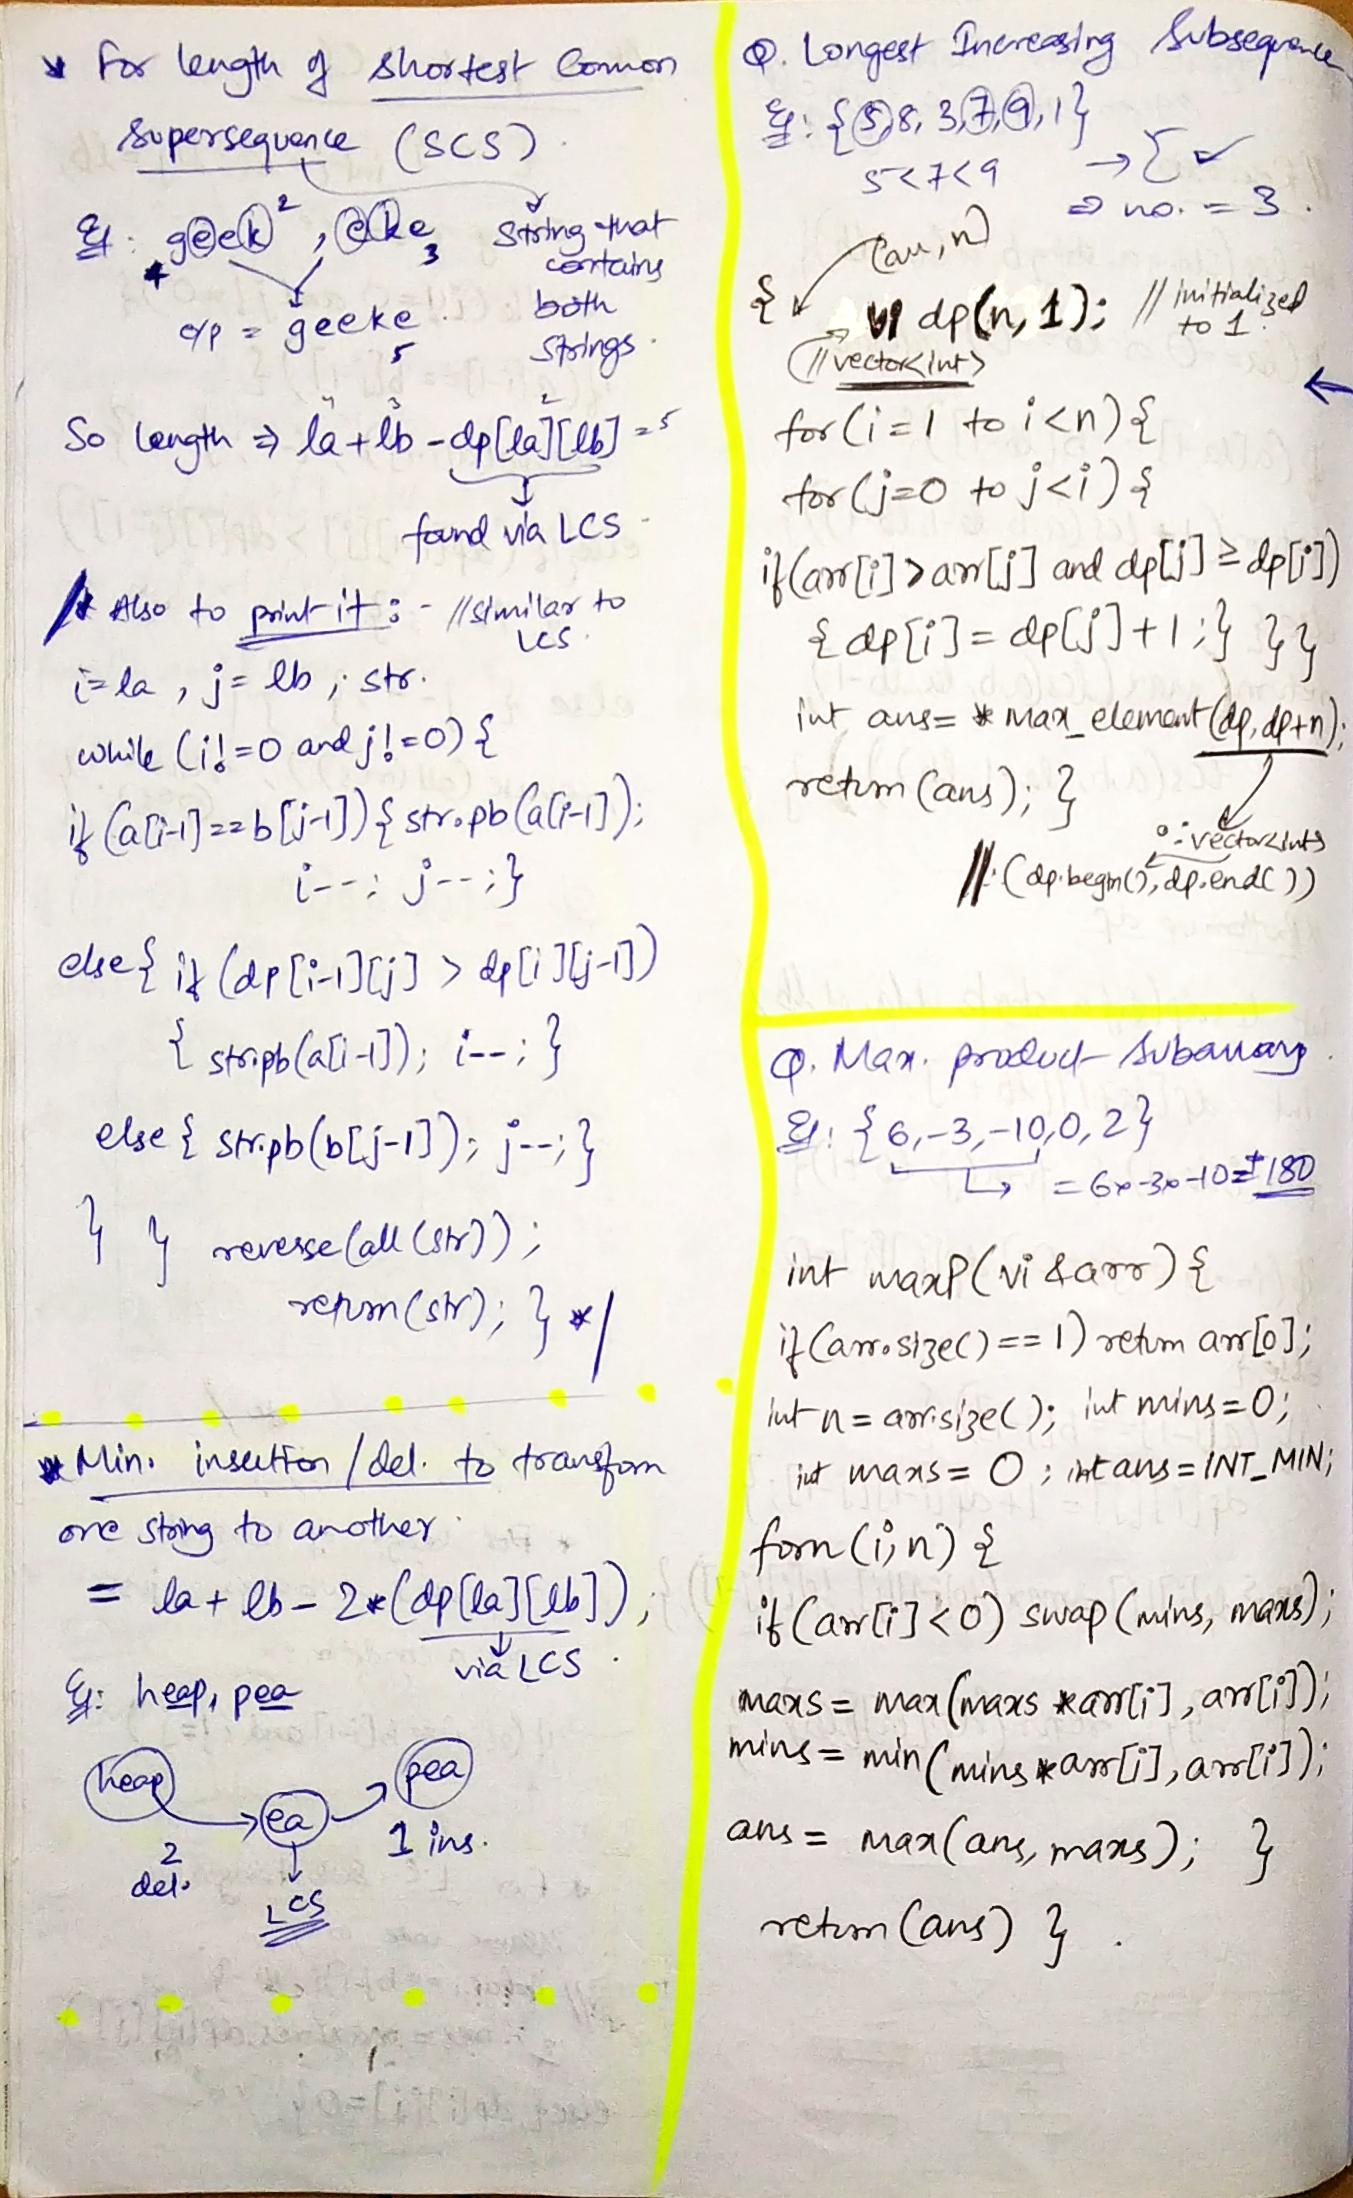 * For length of shortest Common
Supersequence (SCS).
Eg: geek 2, eke 3 string that
4 contains
o/p = geeke. both
5 strings.
4 3 2
So length ⇒ la + lb - dp[la][lb] = 5
found via LCS
/* Also to print it :- //similar to
LCS.
i = la , j = lb ; str.
while (i != 0 and j != 0) {
if (a[i-1] == b[j-1]) { str.pb(a[i-1]);
i--; j--; }
else { if (dp[i-1][j] > dp[i][j-1])
{ str.pb(a[i-1]); i--; }
else { str.pb(b[j-1]); j--; }
} } reverse(all(str));
return(str); } */
* Min. insertion / del. to transform
one string to another.
= la + lb - 2*(dp[la][lb]);
via LCS.
Eg: heap, pea
heap → ea → pea
2 1 ins.
del.
LCS
Q. Longest Increasing Subsequence
Eg: {5, 8, 3, 7, 9, 1}
5<7<9 → { ✓
⇒ no. = 3.
(arr, n)
{ vi dp(n, 1); // initialized
to 1.
(//vector<int>
for (i=1 to i<n) {
for (j=0 to j<i) {
if (arr[i] > arr[j] and dp[j] ≥ dp[i])
{ dp[i] = dp[j] + 1; } } }
int ans = *max_element(dp, dp+n);
return (ans); }
∵ vector<int>
//: (dp.begin(), dp.end())
Q. Max. product Subarray.
Eg: {6, -3, -10, 0, 2}
= 6x-3x-10=+180
int maxP(vi &arr) {
if (arr.size() == 1) return arr[0];
int n = arr.size(); int mins = 0;
int maxs = 0; int ans = INT_MIN;
forn (i, n) {
if (arr[i] < 0) swap (mins, maxs);
maxs = max(maxs *arr[i], arr[i]);
mins = min(mins *arr[i], arr[i]);
ans = max(ans, maxs); }
return (ans) } .